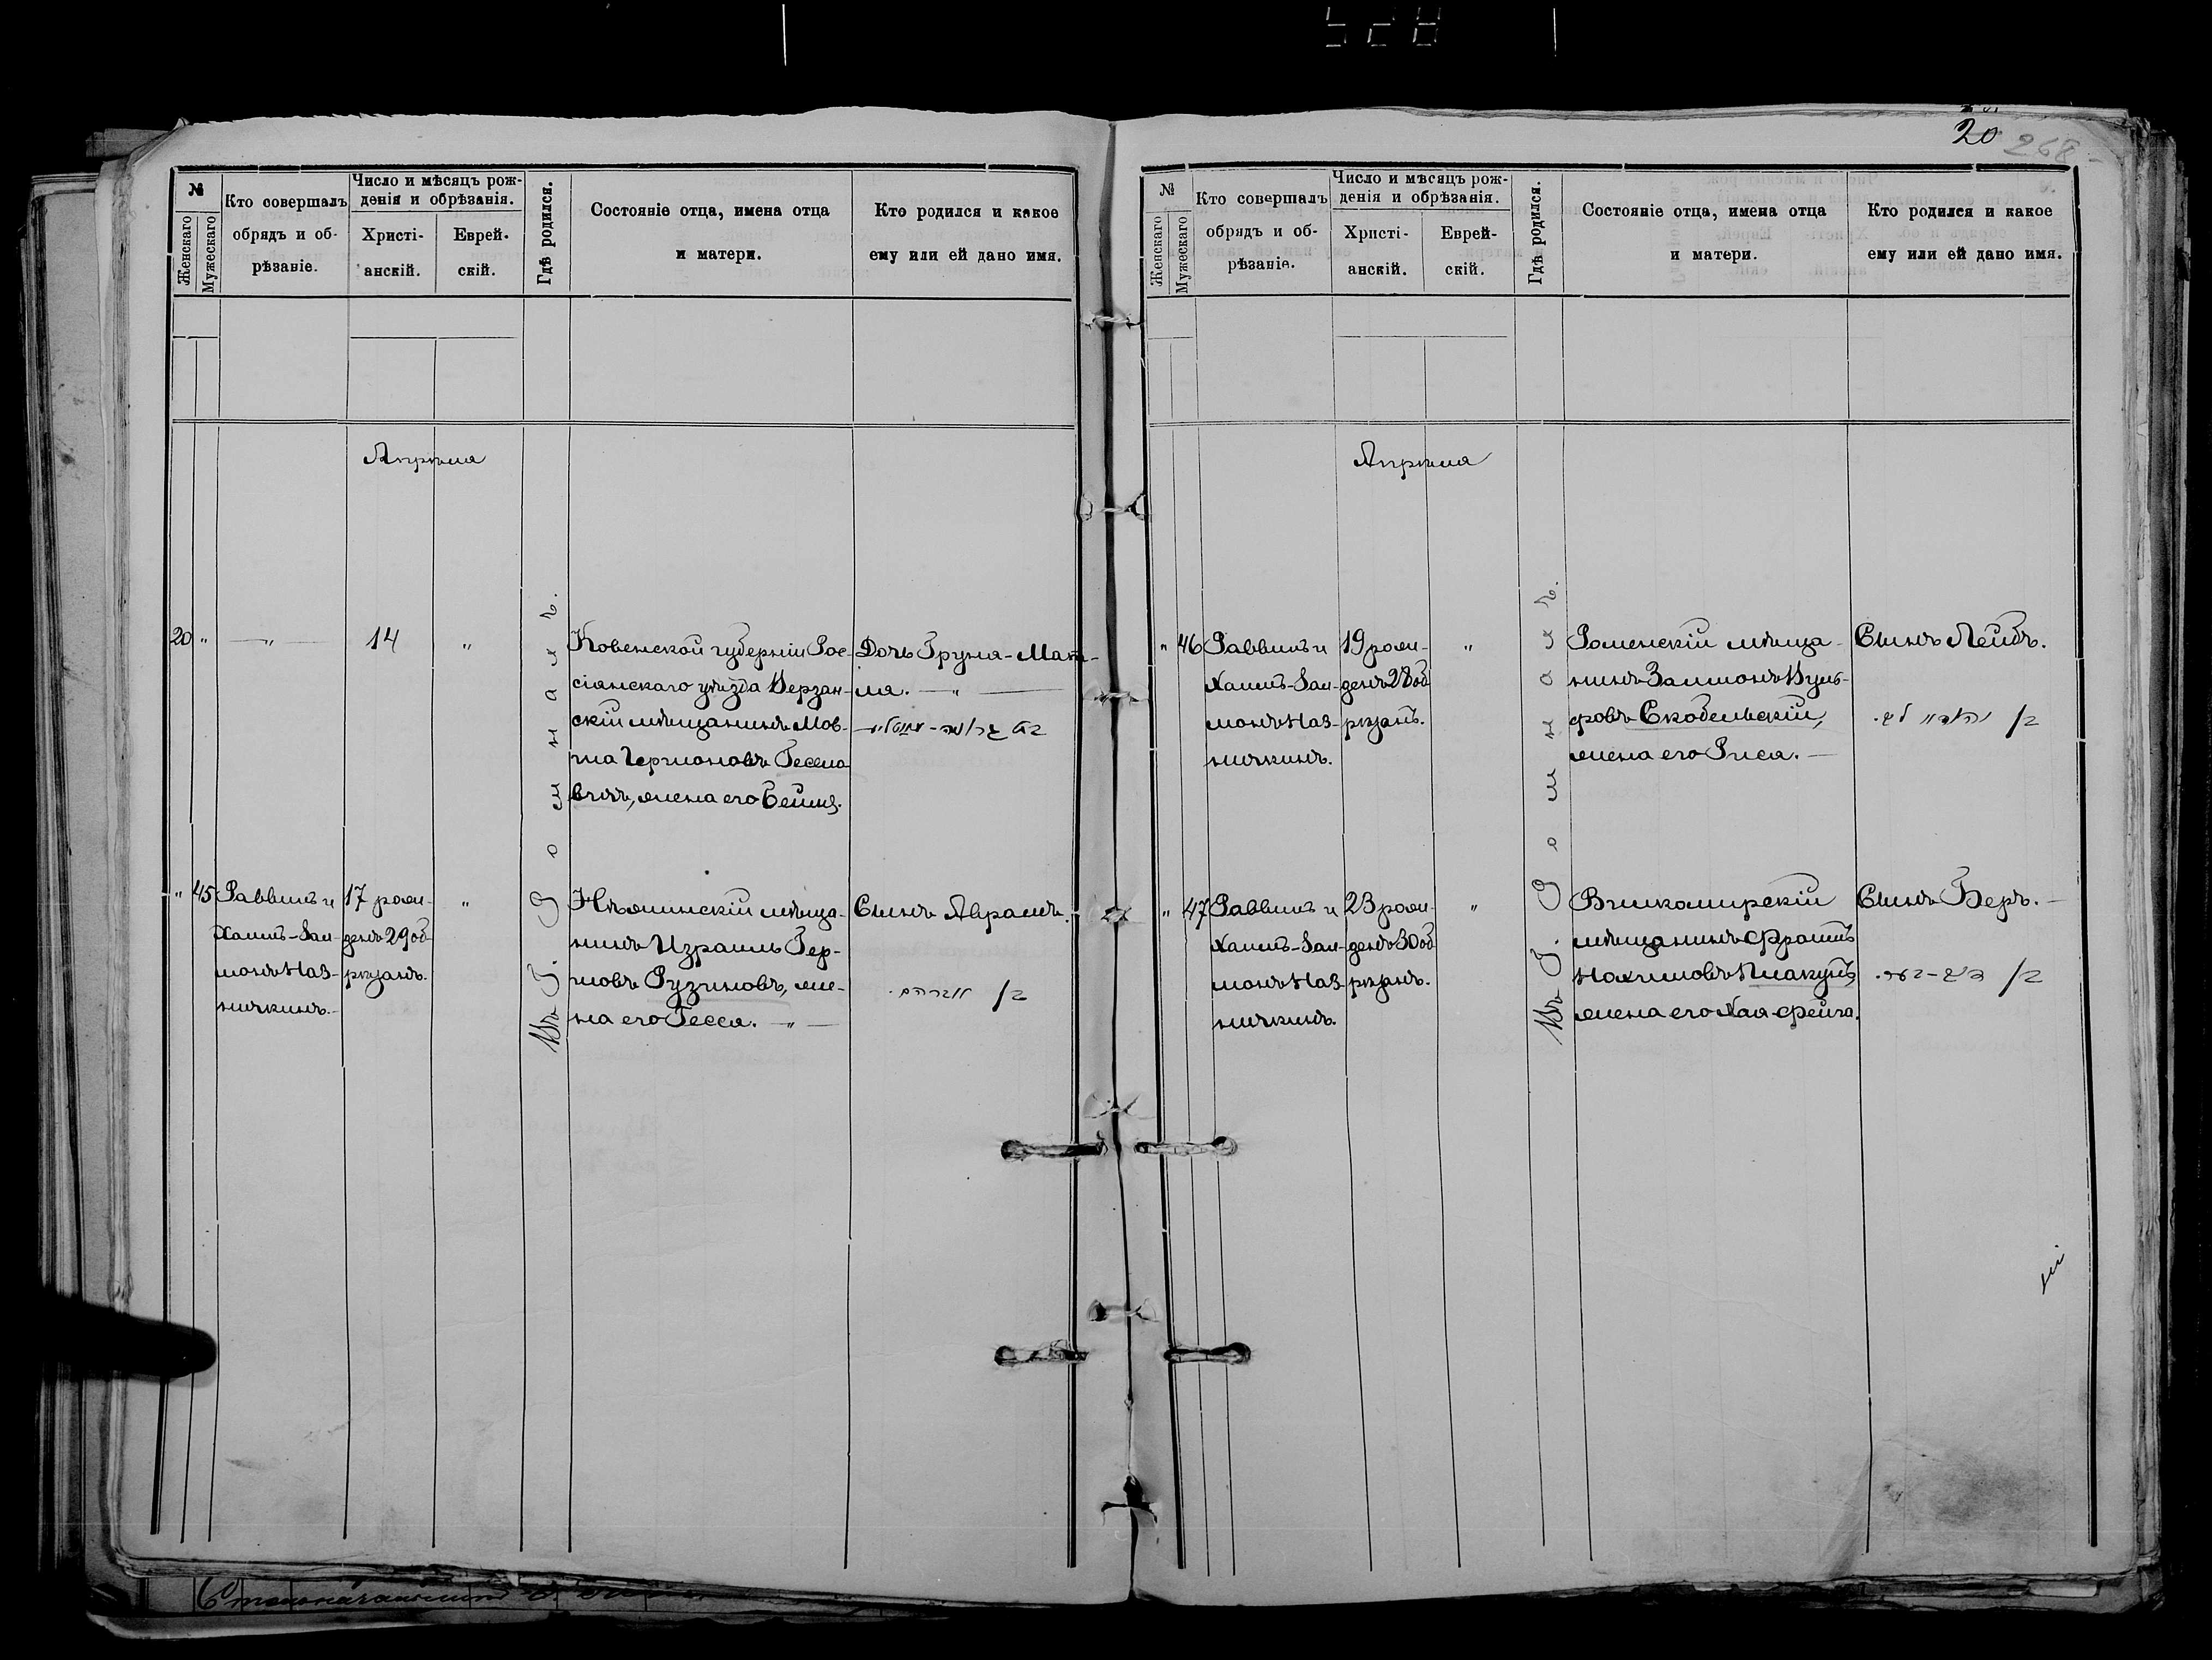 528
20
268
№
Женскаго
Мужескаго
Кто совершалъ
обрядъ и об-
рѣзаніе.
Число и мѣсяцъ рож-
денія и обрѣзанія.
Христі-
анскій.
Еврей-
скій.
Гдѣ родился.
Состояніе отца, имена отца
и матери.
Кто родился и какое
ему или ей дано имя.
Апрѣля
20 " — " — 14 "
Въ Г. Ромнахъ.
Ковенской губерніи Рос-
сіянскаго уѣзда Верзан-
скій мѣщанинъ Мов-
ша
жена его Бейля.
Дочь Груня-Мать-
ля. — " —
" 45
Раввинъ и
Хаимъ-Зал-
монъ Наз-
ничкинъ.
17 рож-
денъ 29 об-
рѣзанъ.
"
Нѣжинскій мѣща-
нинъ Израиль Гер-
шовъ Рузиновъ, же-
на его Гесся. — " —
Сынъ Абрамъ.
בן אברהם.
№
Женскаго
Мужескаго
Кто совершалъ
обрядъ и об-
рѣзаніе.
Число и мѣсяцъ рож-
денія и обрѣзанія.
Христі-
анскій.
Еврей-
скій.
Гдѣ родился.
Состояніе отца, имена отца
и матери.
Кто родился и какое
ему или ей дано имя.
Апрѣля
" 46
Раввинъ и
Хаимъ-Зал-
монъ Наз-
ничкинъ.
19 рож-
денъ 28 об
рѣзанъ.
"
Въ Г. Ромнахъ.
Роменскій мѣща-
нинъ Залмонъ Вуль-
фовъ Скобельскій,
жена его Рися. —
Сынъ Лейбъ.
בן
" 47
Раввинъ и
Хаимъ-Зал-
монъ Наз-
ничкинъ.
23 рож-
денъ 30 об
рѣзанъ.
"
Вилкомирскій
мѣщанинъ Фроимъ
Нохимовъ Плакунъ,
жена его Хая-Фейга.
Сынъ Беръ. —
בן